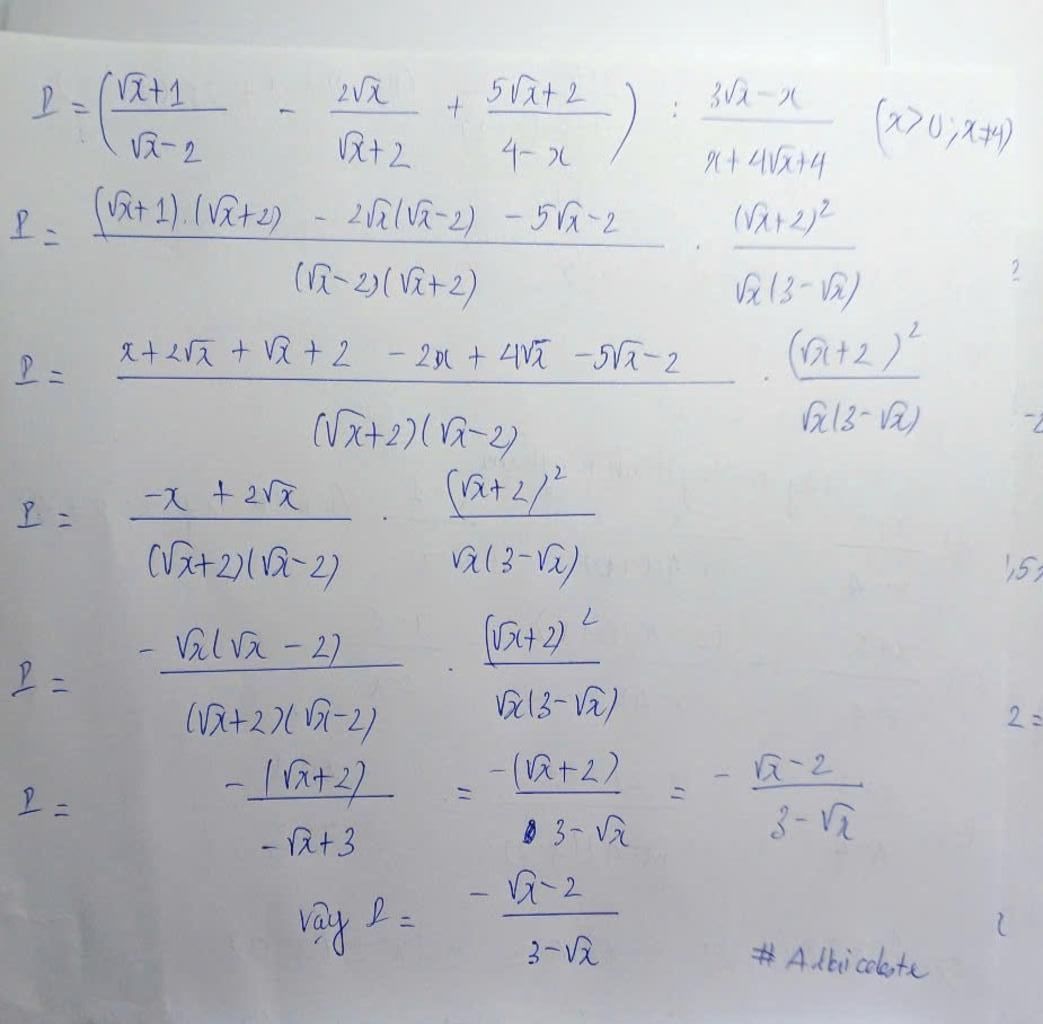 P = ( (√x+1)/(√x-2) - 2√x/(√x+2) + (5√x+2)/(4-x) ) : (3√x-x)/(x+4√x+4) (x>0; x≠4)
P = ((√x+1).(√x+2) - 2√x(√x-2) - 5√x-2)/((√x-2)(√x+2)) . (√x+2)²/(√x(3-√x))
P = (x+2√x+√x+2 -2x+4√x -5√x-2)/((√x+2)(√x-2)) . (√x+2)²/(√x(3-√x))
P = (-x+2√x)/((√x+2)(√x-2)) . (√x+2)²/(√x(3-√x))
P = -√x(√x-2)/((√x+2)(√x-2)) . (√x+2)²/(√x(3-√x))
P = -(√x+2)/(-√x+3) = -(√x+2)/(3-√x) = (-√x-2)/(3-√x)
Vậy P = (-√x-2)/(3-√x)
# Albiceleste